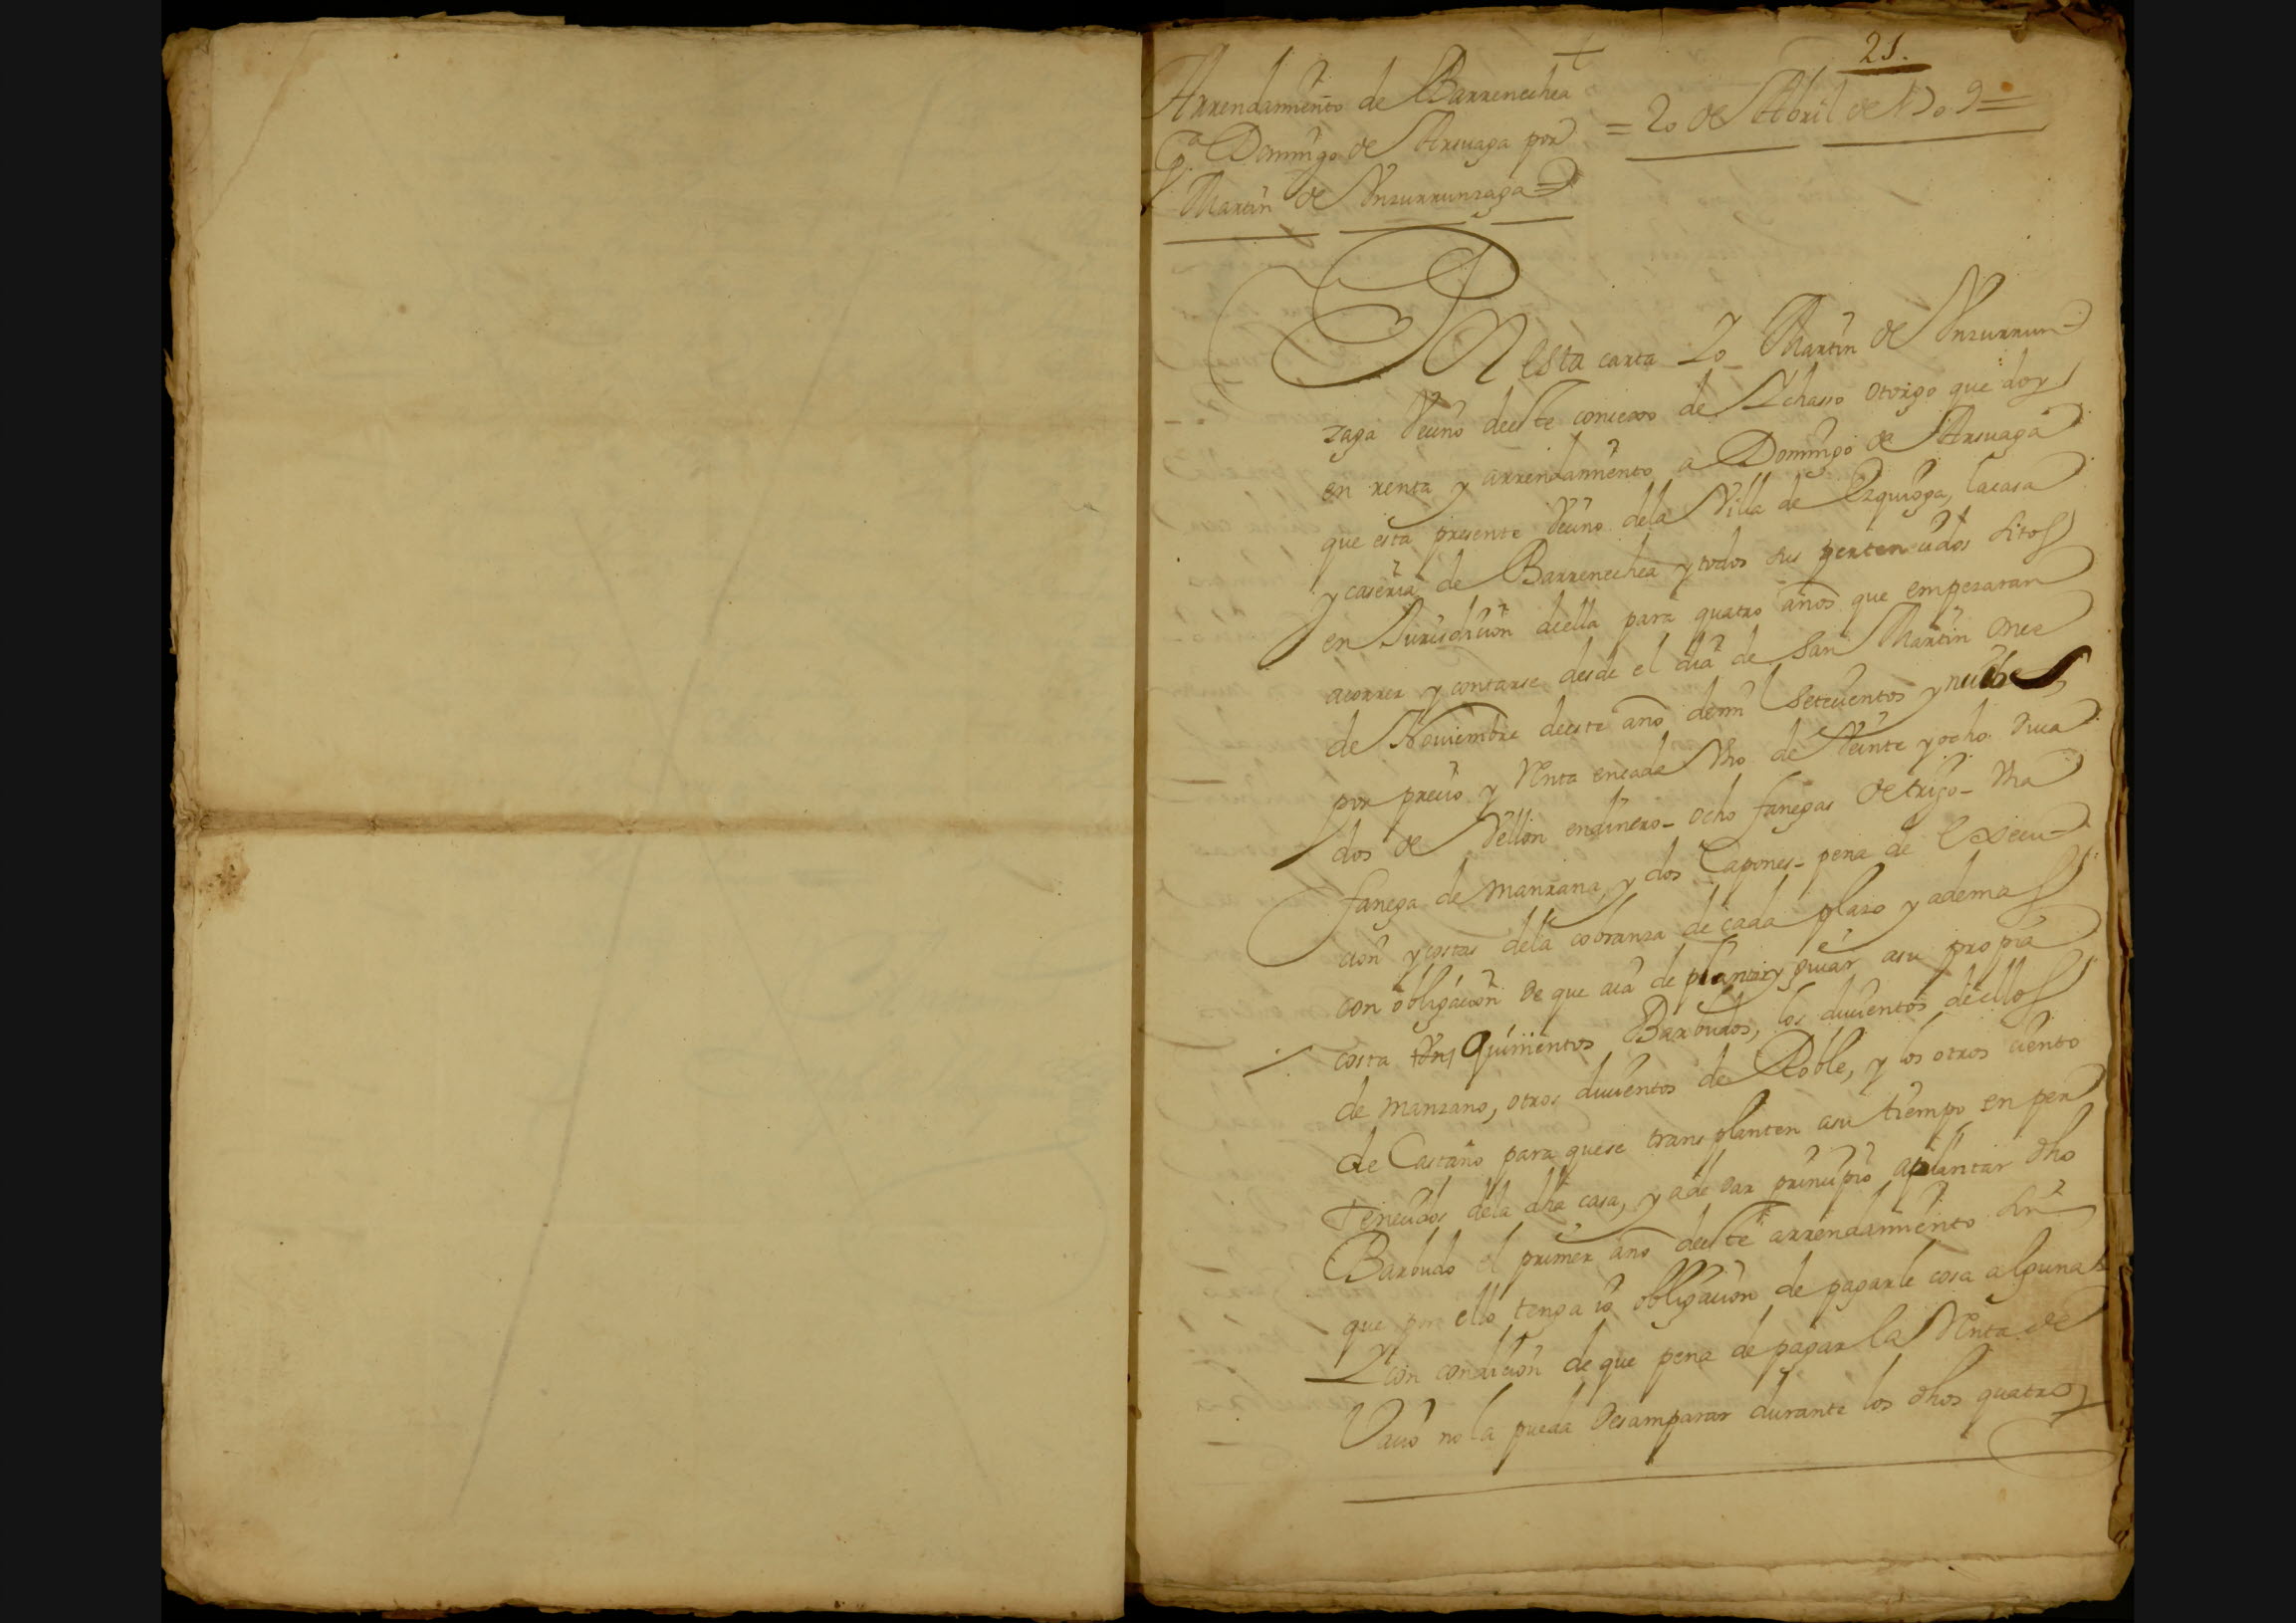 21.
Arrendamiento de Barrenechea
Pa Domingo de Arsuaga por
Martin de Vnzurrunzaga =
= 20 de Abril de 1709 =
En esta carta Yo Martin de Vnzurrun-
zaga Vecino deeste concexo de Ychasso otorgo que doy
en renta y arrendamiento a Domingo de Arsuaga
que esta presente Vecino dela Villa de Ezquioga, lacasa
y caseria de Barrenechea y todos sus pertenecidos sitos
en Jurisdicion deella para quatro años que empezaran
acorrer y contarse desde el dia de San Martin once
de Noviembre deeste año demil setecientos y nuebe
por precio y Renta encada Vno de Veinte y ocho duca
dos de Vellon endinero- ocho fanegas de trigo- Vna
fanega de manzana, y dos Capones- pena de execu-
cion y costas dela cobranza de cada plazo y ademas
con obligacion de que aia de plantar y guiar asu propia
costa Quinientos Barbados, los ducientos deellos
de manzano, otros ducientos de Roble, y los otros ciento
de Castaño para quese transplanten asu tiempo en per
tenecidos dela dha casa, y ade dar principio aplantar dho
Barbado el primer año deeste arrendamiento sin
que por ello tenga io obligacion de pagarle cosa alguna
Y con condicion de que pena de pagar la Renta de
Vacio no la pueda desamparar durante los dhos quatro